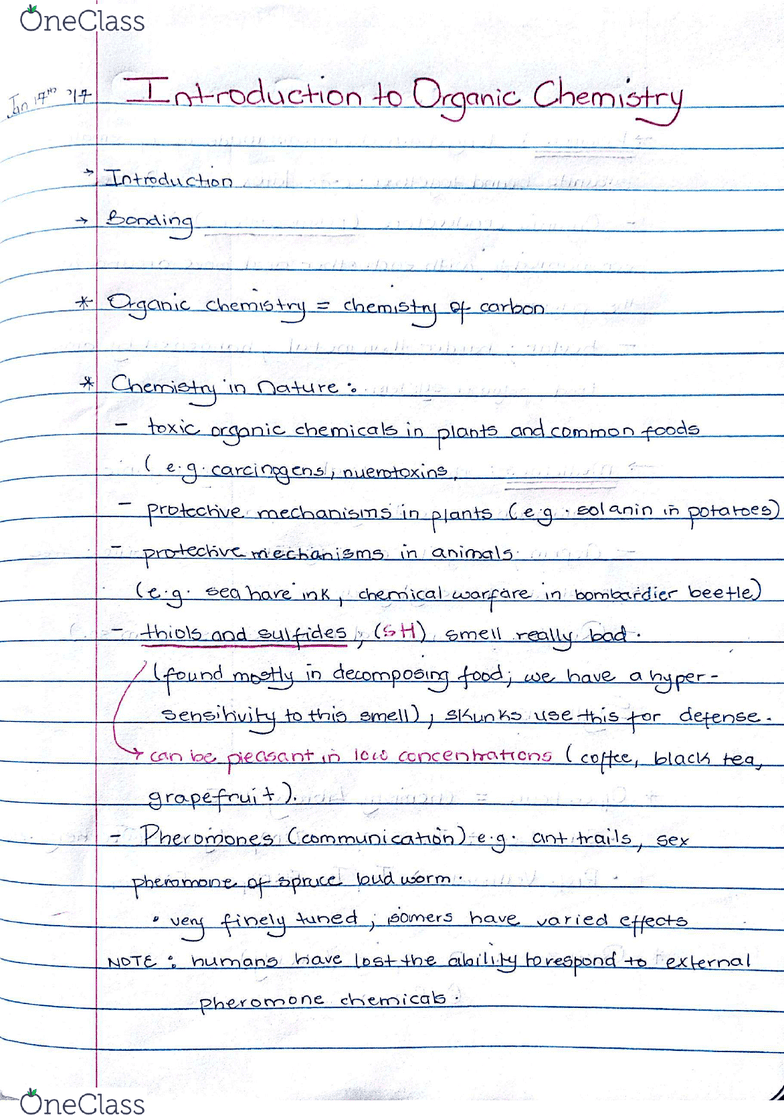 OneClass
Jan 17th '17
Introduction to Organic Chemistry
→ Introduction
→ Bonding
* Organic chemistry = chemistry of carbon
* Chemistry in Nature :
- toxic organic chemicals in plants and common foods
(e.g. carcinogens, nuerotoxins,
- protective mechanisms in plants (e.g. solanin in potatoes)
- protective mechanisms in animals.
(e.g. sea hare ink, chemical warfare in bombardier beetle)
- thiols and sulfides, (SH) smell really bad.
(found mostly in decomposing food; we have a hyper-
sensitivity to this smell), skunks use this for defense.
→ can be pleasant in low concentrations (coffee, black tea,
grapefruit).
- Pheromones (communication) e.g. ant trails, sex
pheromone of spruce loud worm.
• very finely tuned; isomers have varied effects
NOTE : humans have lost the ability to respond to external
pheromone chemicals.
OneClass